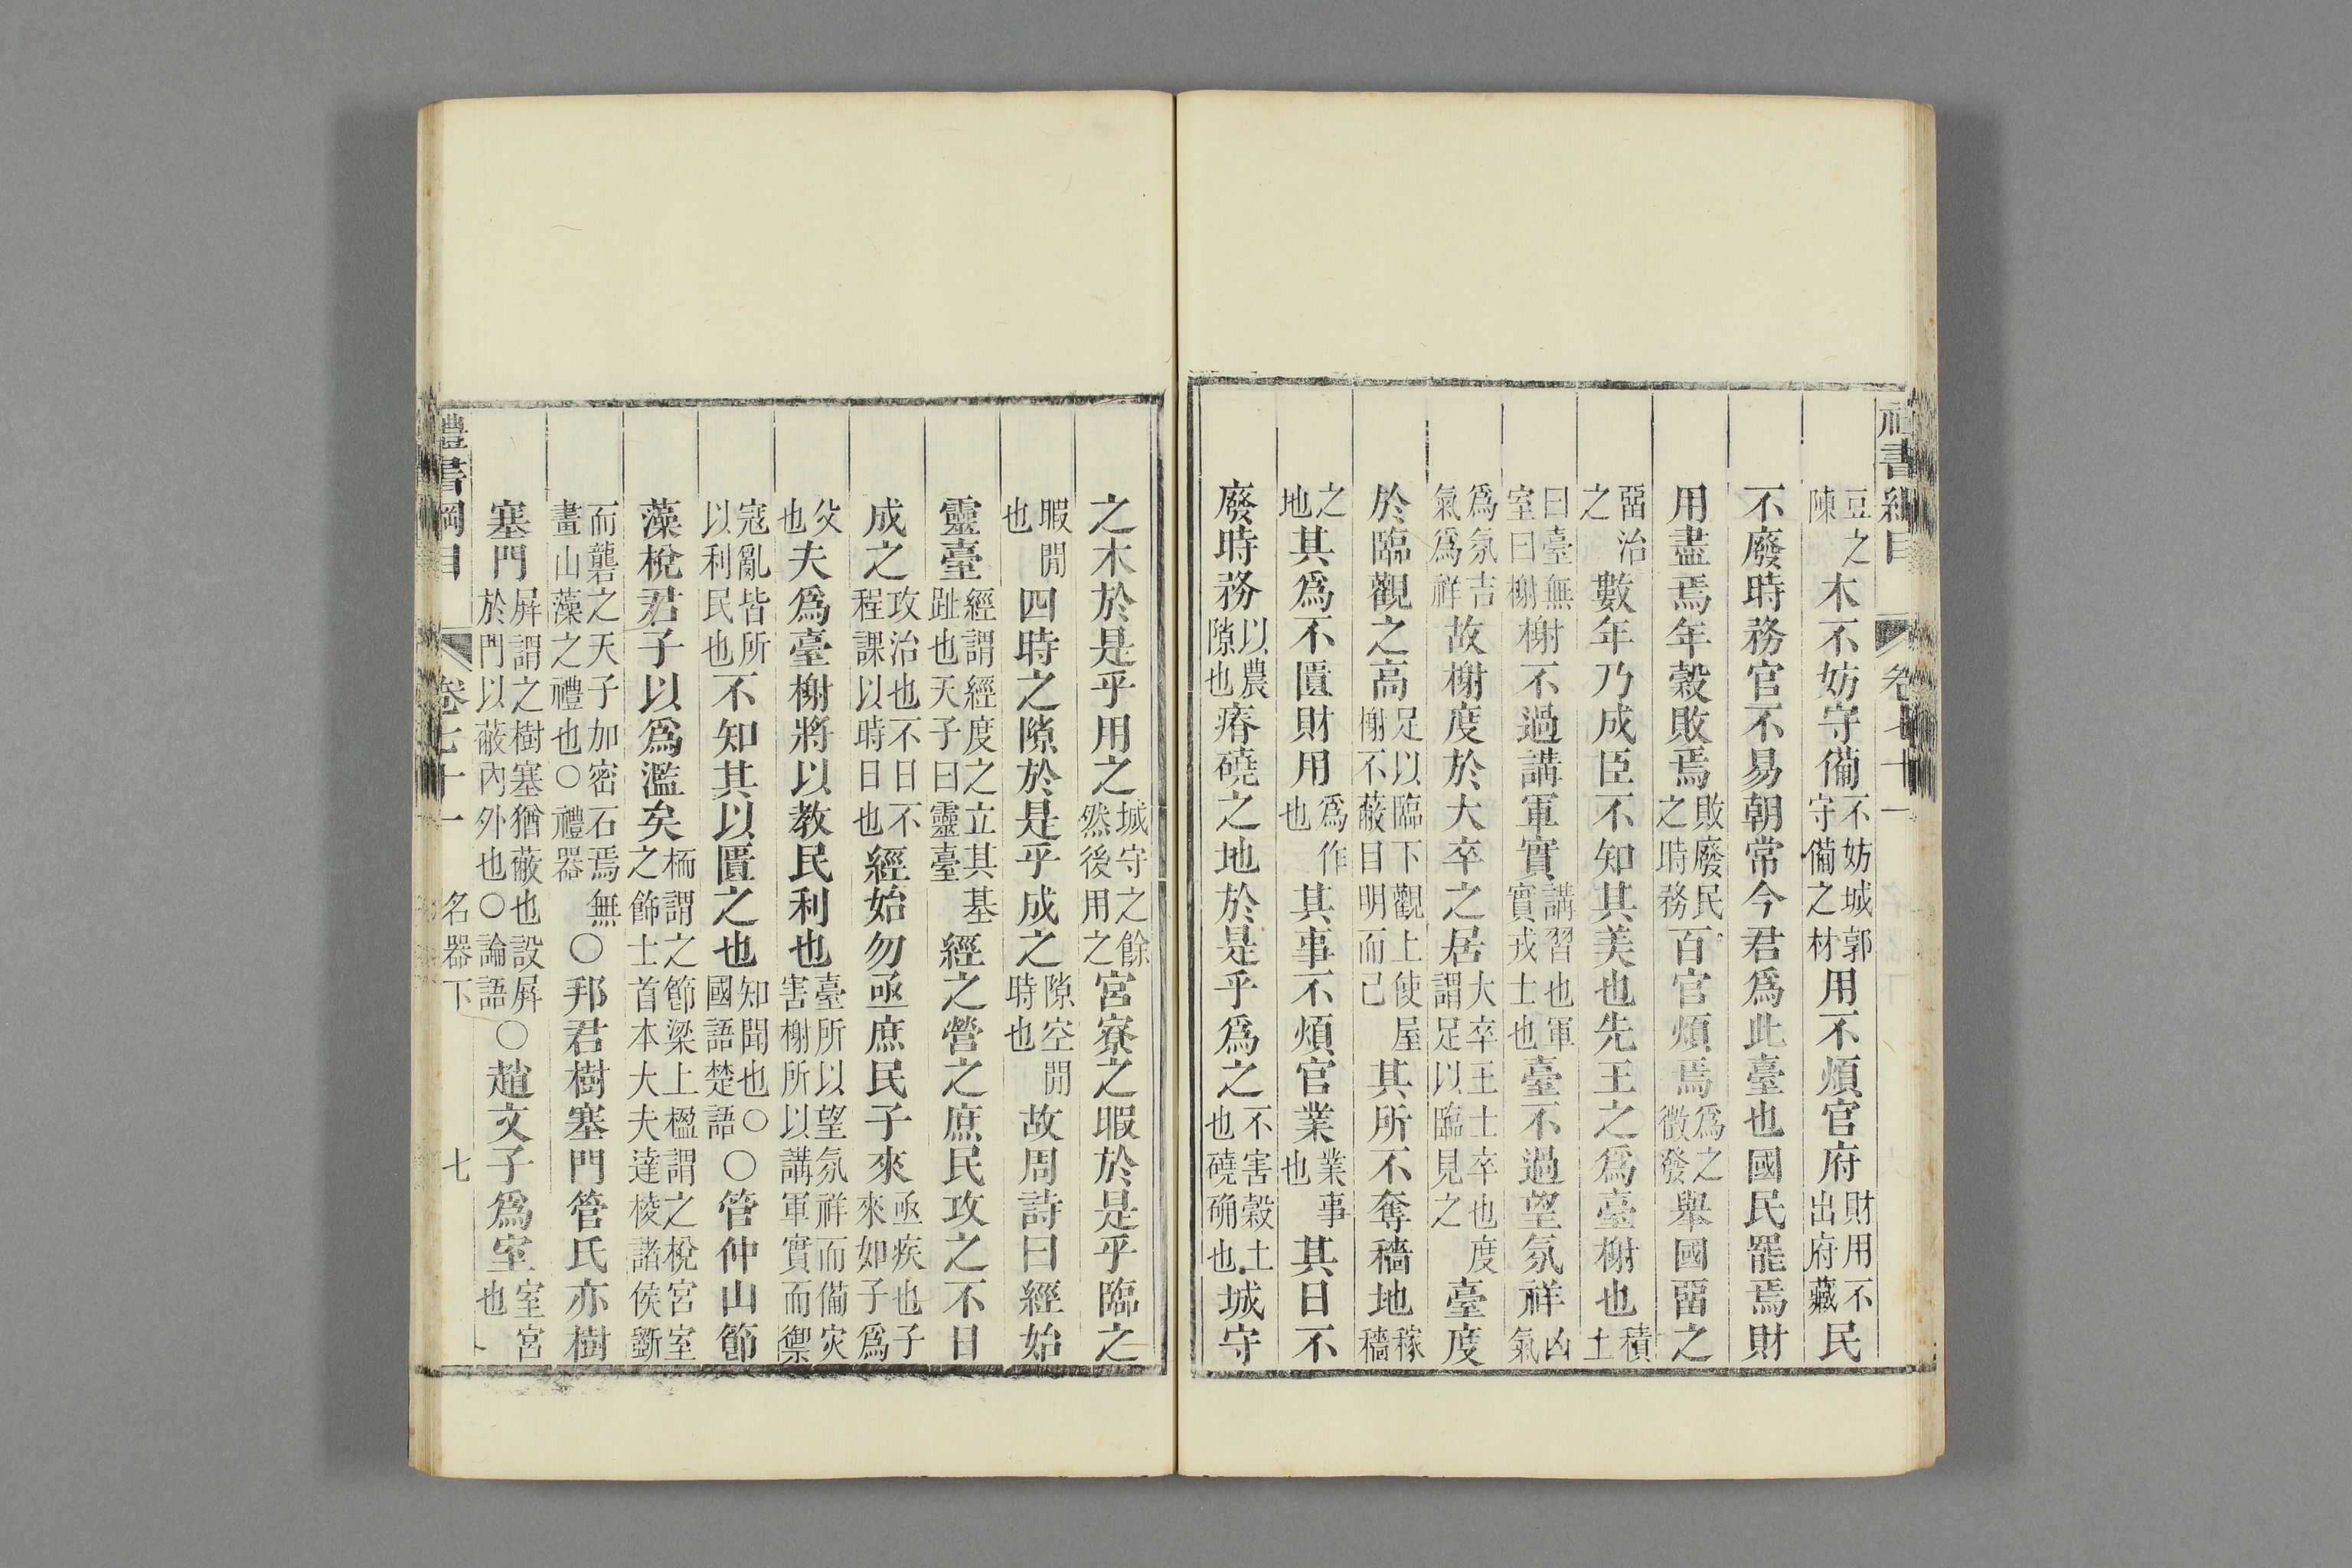 禮書綱目 卷七十一
豆之陳木不妨守備不妨城郭守備之材用不煩官府財用不出府藏民
不廢時務官不易朝常今君爲此臺也國民罷焉財
用盡焉年穀敗焉敗廢民之時務百官煩焉爲之徵發舉國畱之
畱治之數年乃成臣不知其美也先王之爲臺榭也積土
曰臺無室曰榭榭不過講軍實講習也軍實戎士也臺不過望氛祥凶氣
爲氛吉氣爲祥故榭度於大卒之居大卒王士卒也度謂足以臨見之臺度
於臨觀之高足以臨下觀上使屋榭不蔽目明而己其所不奪穡地稼穡
之地其爲不匱財用爲作也其事不煩官業業事也其日不
廢時務以農隙也瘠磽之地於是乎爲之不害穀土也磽确也城守
之木於是乎用之城守之餘然後用之宮寮之暇於是乎臨之
暇閒也四時之隙於是乎成之隙空閒時也故周詩曰經始
靈臺經謂經度之立其基趾也天子曰靈臺經之營之庶民攻之不日
成之攻治也不日不程課以時日也經始勿亟庶民子來亟疾也子來如子爲
父也夫爲臺榭將以教民利也臺所以望氛祥而備灾害榭所以講軍實而禦
寇亂皆所以利民也不知其以匱之也知聞也○國語楚語○管仲山節
藻梲君子以爲濫矣栭謂之節梁上楹謂之梲宮室之飾士首本大夫達棱諸侯斲
而礱之天子加密石焉無畫山藻之禮也○禮器○邦君樹塞門管氏亦樹
塞門屏謂之樹塞猶蔽也設屏於門以蔽內外也○論語○趙文子爲室室宮也
禮書綱目 卷七十一 名器下 七